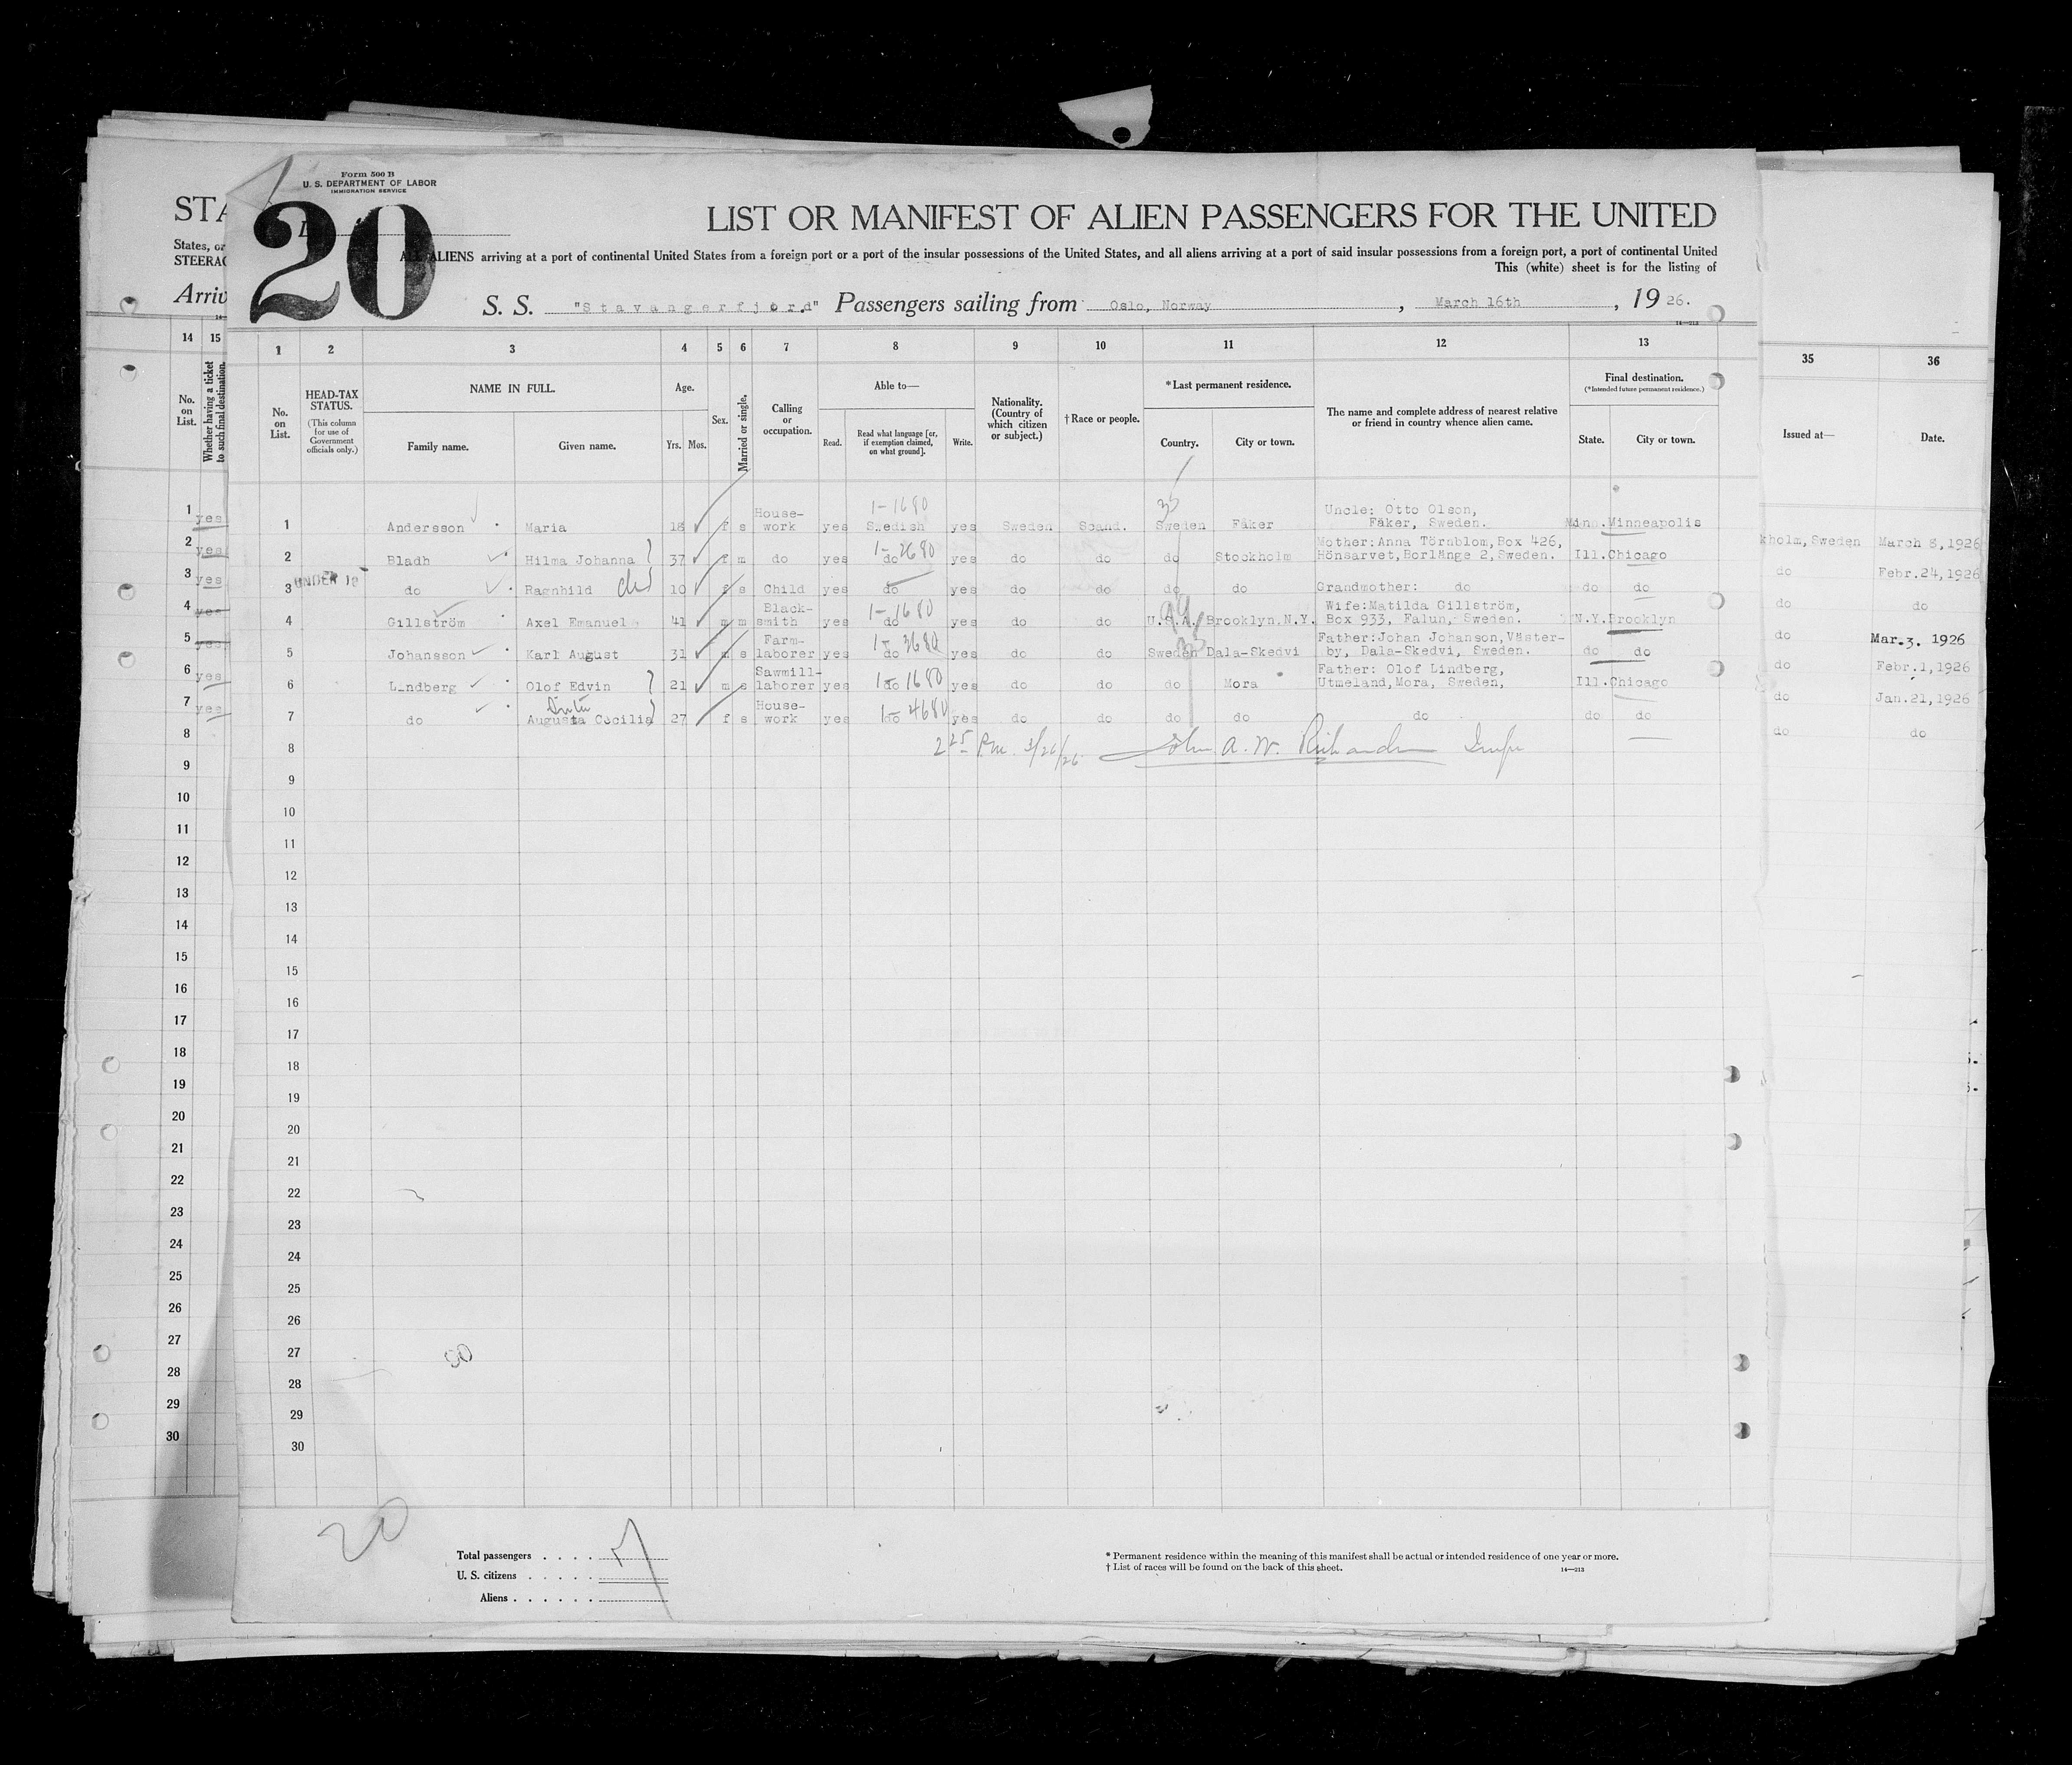 Form 500 B
U. S. DEPARTMENT OF LABOR
IMMIGRATION SERVICE
20
STA
States, or
STEERAG
Arriv
LIST OR MANIFEST OF ALIEN PASSENGERS FOR THE UNITED
ALL ALIENS arriving at a port of continental United States from a foreign port or a port of the insular possessions of the United States, and all aliens arriving at a port of said insular possessions from a foreign port, a port of continental United
This (white) sheet is for the listing of
S. S. "Stavangerfjord" Passengers sailing from Oslo, Norway, March 16th, 19 26.
14—213
14 15 1 2 3 4 5 6 7 8 9 10 11 12 13 35 36
No. on List.
Whether having a ticket to such final destination.
No. on List.
HEAD-TAX STATUS.
(This column for use of Government officials only.)
NAME IN FULL.
Family name. Given name.
Age.
Yrs. Mos.
Sex.
Married or single.
Calling or occupation.
Able to—
Read. Read what language [or, if exemption claimed, on what ground]. Write.
Nationality. (Country of which citizen or subject.)
† Race or people.
* Last permanent residence.
Country. City or town.
The name and complete address of nearest relative or friend in country whence alien came.
Final destination.
(* Intended future permanent residence.)
State. City or town.
Issued at— Date.
1 yes 1 Andersson Maria 18 f s House-work yes Swedish 1-1680 yes Sweden Scand. Sweden Fåker Uncle: Otto Olson, Fåker, Sweden. Minn. Minneapolis
2 yes 2 Bladh Hilma Johanna 37 f m do yes do 1-2680 yes do do do Stockholm Mother:Anna Törnblom,Box 426, Hönsarvet,Borlänge 2,Sweden. Ill. Chicago kholm, Sweden March 8, 1926
3 yes UNDER 16 3 do Ragnhild 10 f s Child yes do yes do do do do Grandmother: do do do do Febr.24,1926
4 yes 4 Gillström Axel Emanuel 41 m m Black-smith yes do 1-1680 yes do do U.S.A. Brooklyn.N.Y. Wife:Matilda Gillström, Box 933, Falun, Sweden. N.Y. Brooklyn do do
5 yes 5 Johansson Karl August 31 m s Farm-laborer yes do 1-3680 yes do do Sweden Dala-Skedvi Father:Johan Johanson,Väster-by, Dala-Skedvi, Sweden. do do do Mar. 3. 1926
6 yes 6 Lindberg Olof Edvin 21 m s Sawmill-laborer yes do 1-1680 yes do do do Mora Father: Olof Lindberg, Utmeland,Mora, Sweden, Ill. Chicago do Febr.1,1926
7 yes 7 do Augusta Cecilia 27 f s House-work yes do 1-4680 yes do do do do do do do do Jan.21,1926
8 8 2 25 P.m. 3/26/26 John A. W. Richards Insp do do
9 9
10 10
11 11
12 12
13 13
14 14
15 15
16 16
17 17
18 18
19 19
20 20
21 21
22 22
23 23
24 24
25 25
26 26
27 27
28 28
29 29
30 30
20
Total passengers . . . . 7
U. S. citizens . . . . .
Aliens . . . . . .
* Permanent residence within the meaning of this manifest shall be actual or intended residence of one year or more.
† List of races will be found on the back of this sheet.
14—213